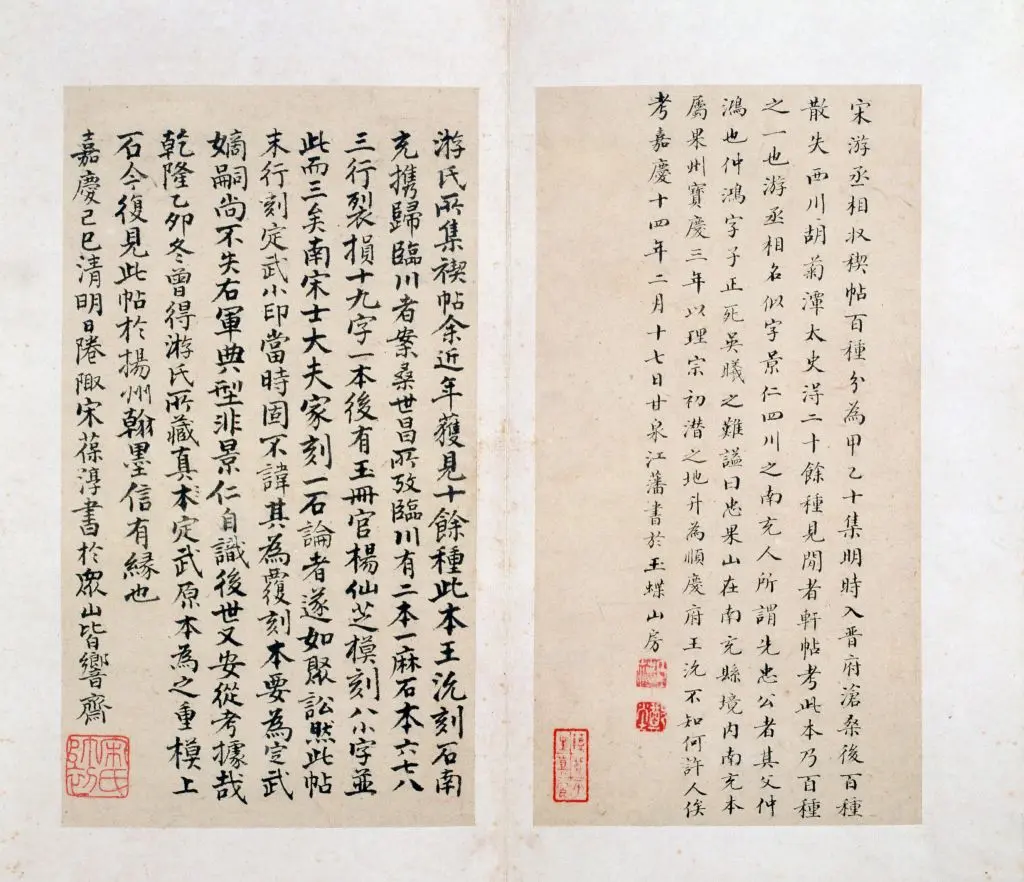 宋游丞相㕚稧帖百種分為甲乙十集明時入晋府滄桑後百種
散失西川胡菊潭太史淂二十餘種見閒者軒帖考此本乃百種
之一也游丞相名似字景仁四川之南充人所謂先忠公者其父仲
鴻也仲鴻字子正死吳曦之難謚曰忠果山在南充縣境内南充本
屬果州寶慶三年以理宗初潜之地升為順慶府王沇不知何許人俟
考嘉慶十四年二月十七日甘泉江藩書於玉蝶山房
游氏所集禊帖余近年獲見十餘種此本王沇刻石南
充攜歸臨川者案桑世昌所攷臨川有二本一麻石本六七八
三行裂損十九字一本後有玉冊官楊仙芝模刻八小字並
此而三矣南宋士大夫家刻一石論者遂如聚訟然此帖
末行刻定武小印當時固不諱其為覆刻本要為定武
嫡嗣尚不失右軍典型非景仁自識後世又安從考據哉
乾隆乙卯冬曾得游氏所藏真本定武原本為之重模上
石今復見此帖於揚州翰墨信有緣也
嘉慶己巳清明日陭陬宋葆淳書於眾山皆響齋